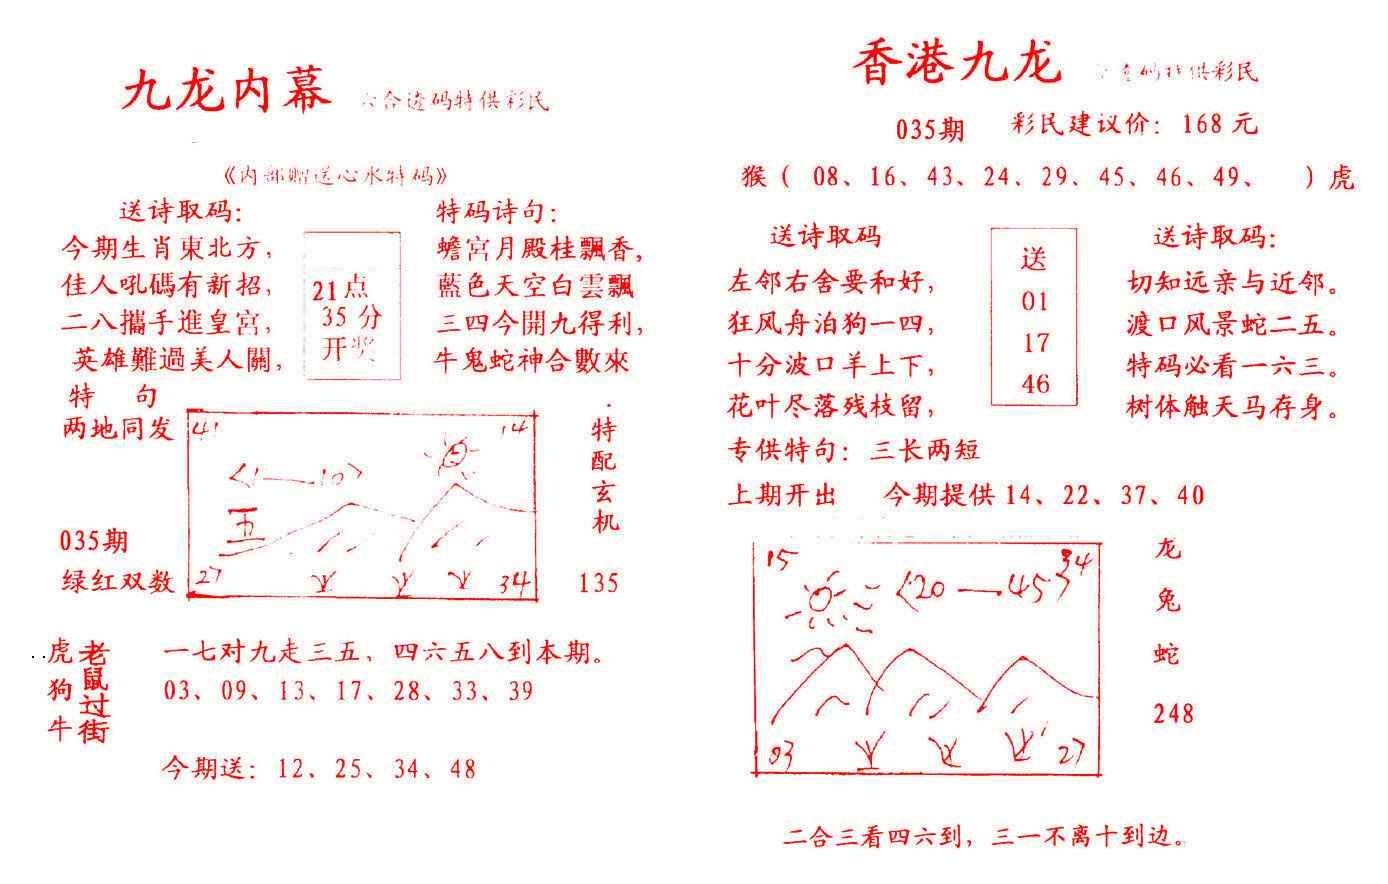 九龙内幕
六合透码特供彩民
《内部赠送心水特码》
送诗取码：
今期生肖東北方，
佳人吼碼有新招，
二八攜手進皇宮，
英雄難過美人關，
21点
35分
开奖
特码诗句：
蟾宮月殿桂飄香，
藍色天空白雲飄
三四今開九得利，
牛鬼蛇神合數來
特 句
两地同发
035期
绿红双数
41 14
<1—10>
五
27 34
特配玄机
135
虎狗牛
老鼠过街
一七对九走三五、四六五八到本期。
03、09、13、17、28、33、39
今期送：12、25、34、48
香港九龙
透码特供彩民
035期 彩民建议价：168元
猴（ 08、16、43、24、29、45、46、49、 ）虎
送诗取码
左邻右舍要和好，
狂风舟泊狗一四，
十分波口羊上下，
花叶尽落残枝留，
送
01
17
46
送诗取码：
切知远亲与近邻。
渡口风景蛇二五。
特码必看一六三。
树体触天马存身。
专供特句：三长两短
上期开出 今期提供14、22、37、40
15 34
<20—45>
03 27
龙
兔
蛇
248
二合三看四六到，三一不离十到边。